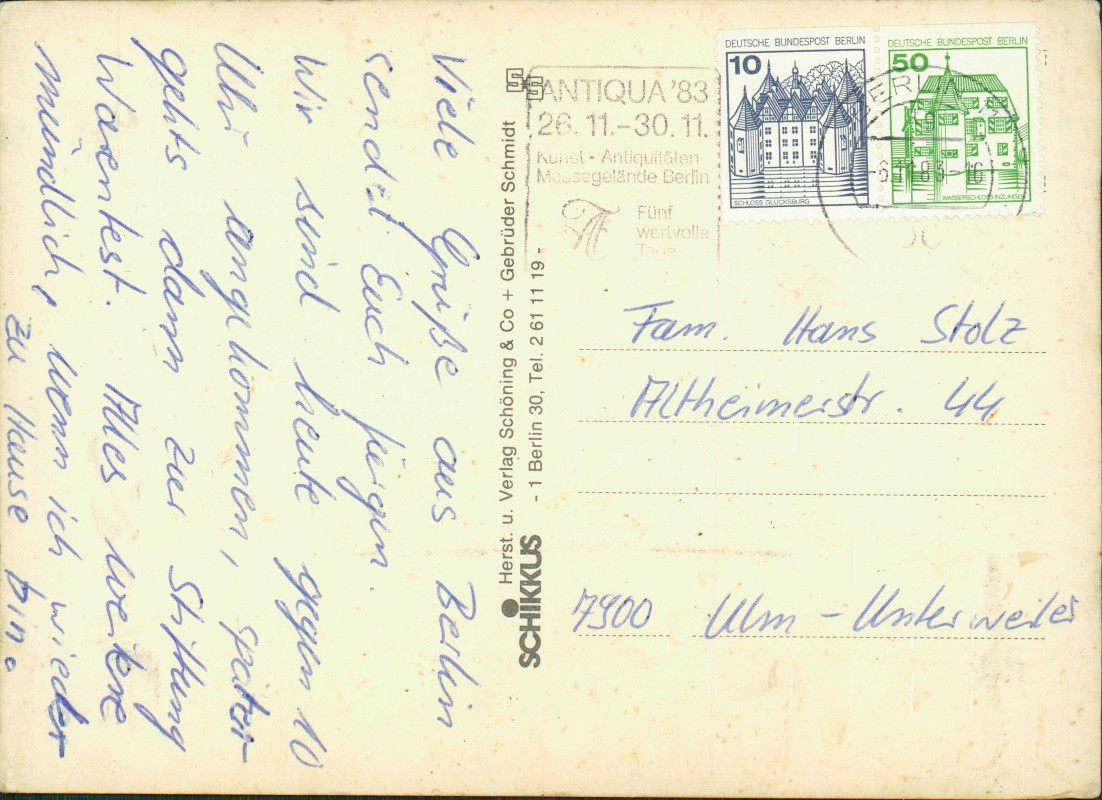 Viele Grüße aus Berlin
sendet Euch Jürgen.
Wir sind heute gegen 10
Uhr angekommen, später
gehts dann zur Stiftung
Warentest. Alles weitere
mündlich, wenn ich wieder
zu Hause bin.
SCHIKKUS
Herst. u. Verlag Schöning & Co + Gebrüder Schmidt
- 1 Berlin 30, Tel. 2 61 11 19 -
ANTIQUA '83
26. 11. - 30. 11.
Kunst - Antiquitäten
Messegelände Berlin
Fünf
wertvolle
Tage
DEUTSCHE BUNDESPOST BERLIN
10
SCHLOSS GLÜCKSBURG
DEUTSCHE BUNDESPOST BERLIN
50
WASSERSCHLOSS INZLINGEN
-6.11.83-16
Fam. Hans Stolz
Altheimerstr. 44
7900 Ulm - Unterweiler